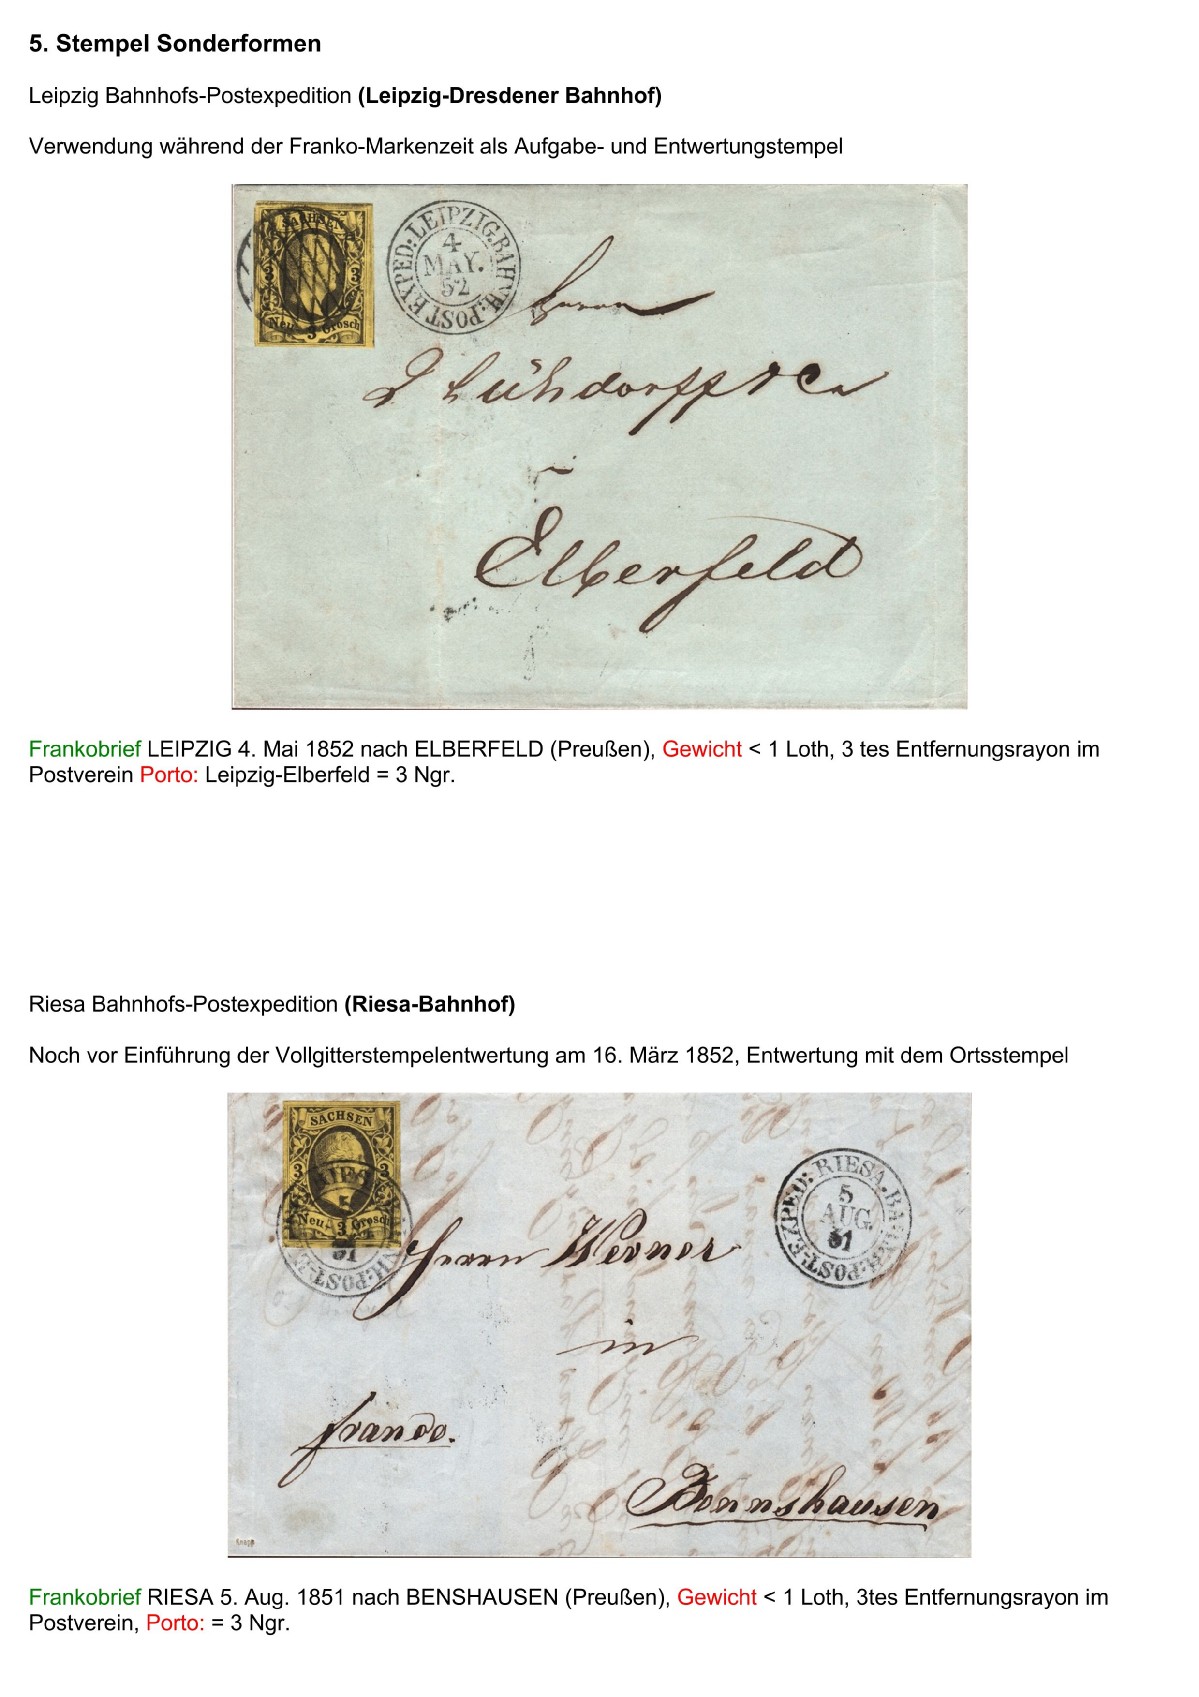 5. Stempel Sonderformen
Leipzig Bahnhofs-Postexpedition (Leipzig-Dresdener Bahnhof)
Verwendung während der Franko-Markenzeit als Aufgabe- und Entwertungstempel
SACHSEN
3 3
Neu- 3 Grosch
POST EXPED: LEIPZIG.BAHNH:
4
MAY.
52
Herrn
Elberfeld
Frankobrief LEIPZIG 4. Mai 1852 nach ELBERFELD (Preußen), Gewicht < 1 Loth, 3 tes Entfernungsrayon im
Postverein Porto: Leipzig-Elberfeld = 3 Ngr.
Riesa Bahnhofs-Postexpedition (Riesa-Bahnhof)
Noch vor Einführung der Vollgitterstempelentwertung am 16. März 1852, Entwertung mit dem Ortsstempel
SACHSEN
3 3
Neu- 3 Grosch
51
POST-EXPED: RIESA.BAHNH:
5
AUG.
51
Herrn Werner
in
franco.
Bennshausen
Knapp
Frankobrief RIESA 5. Aug. 1851 nach BENSHAUSEN (Preußen), Gewicht < 1 Loth, 3tes Entfernungsrayon im
Postverein, Porto: = 3 Ngr.